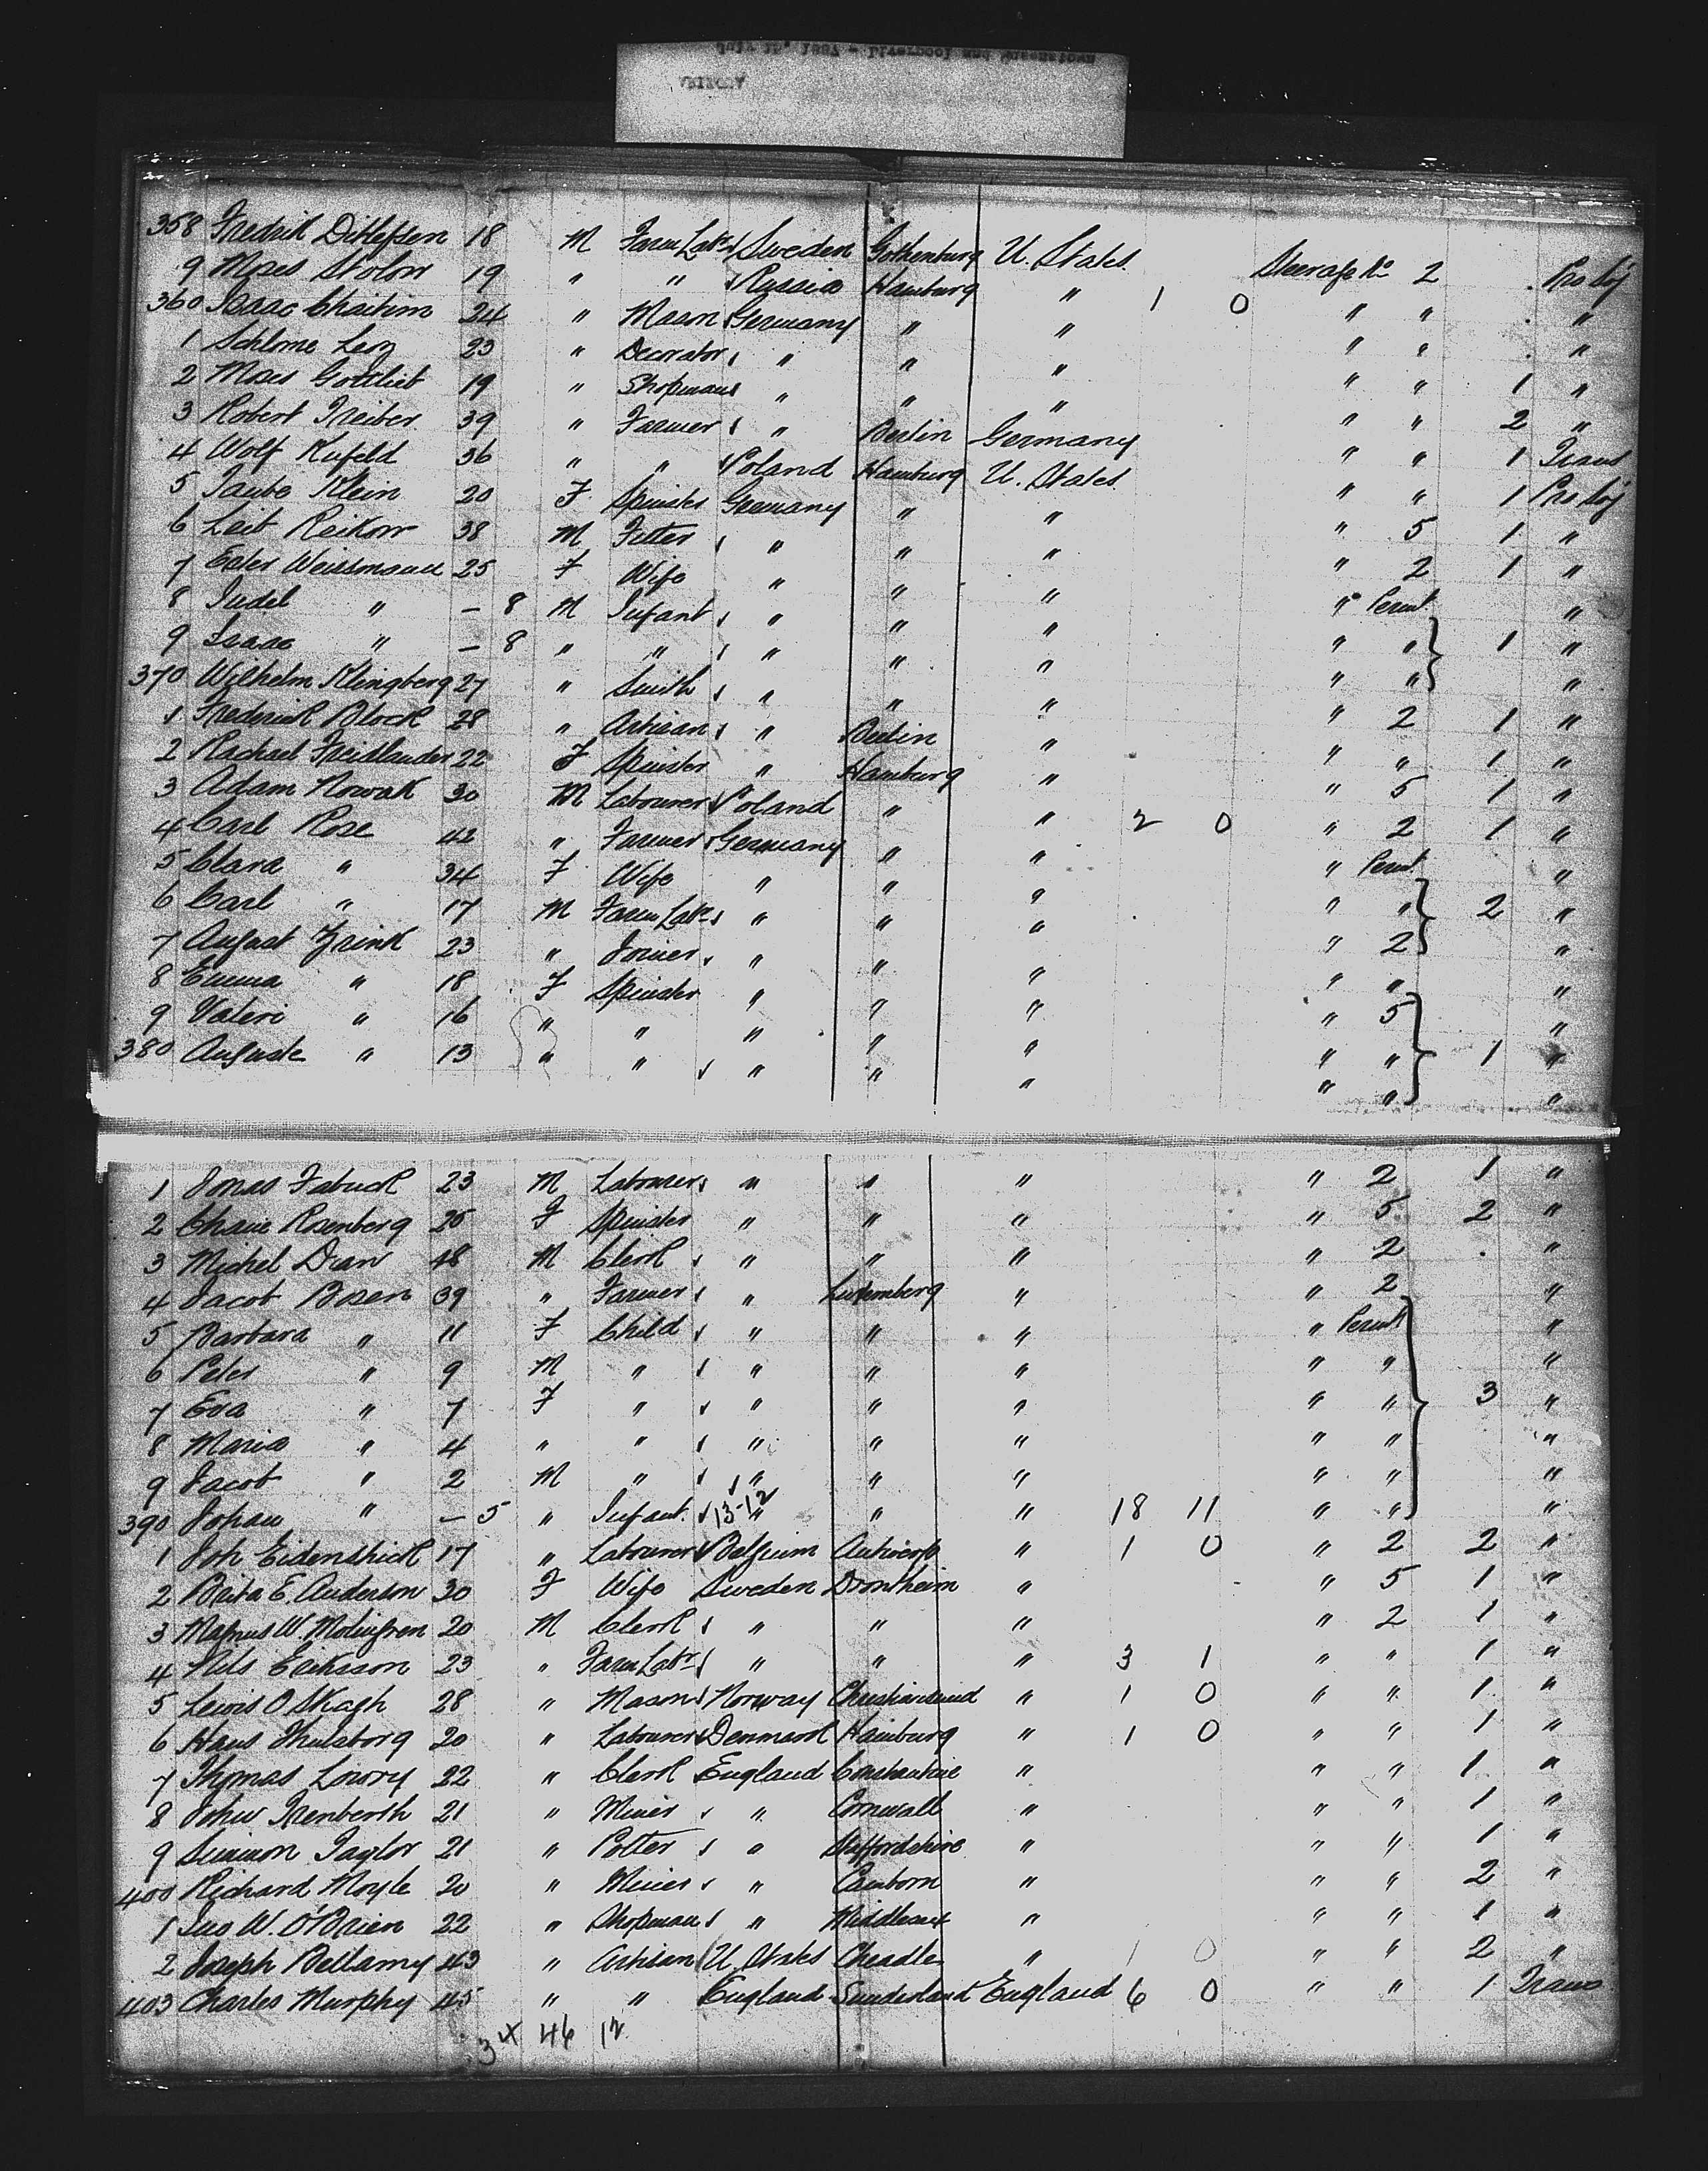 358 Fredrik Ditlefsen 18 M Farm Labr Sweden Gothenburg U. States. Steerage No 2 Pro Sój
9 Moses Stolow 19 " " Russia Hamburg " 1 0 " " "
360 Isaac Chaitim 24 " Mason Germany " " " " "
1 Schlome Levy 23 " Decorator " " " " " 1 "
2 Moses Gottlieb 19 " Shopman " " " " " 2 "
3 Robert Treiber 39 " Farmer " Berlin Germany " " 1 Trans
4 Wolf Kufeld 36 " " Poland Hamburg U. States. " " 1
5 Taube Klein 20 F Spinster Germany " " " 5 1 "
6 Leib Reikow 38 M Fitter " " " " 2 1 "
7 Ester Weissmann 25 F Wife " " " " "
8 Judel " – 8 M Infant " " " " " 1 "
9 Isaac " – 8 " " " " " " " "
370 Wilhelm Klingberg 27 " Smith " " " " 2 1 "
1 Frederick Block 28 " Artisan " Berlin " " " 1 "
2 Rachael Freidlander 22 F Spinster " Hamburg " " 5 1 "
3 Adam Nowak 30 M Labourer Poland " " 2 0 " 2 1 "
4 Carl Rose 42 " Farmer Germany " " " "
5 Clara " 34 F Wife " " " " " 2 "
6 Carl " 17 M Farm Labr " " " " 2 "
7 August Zrink 23 " Joiner " " " " " "
8 Emma " 18 F Spinster " " " " 5 "
9 Valeri " 16 " " " " " " " 1 "
380 Auguste " 13 " " " " " " " "
1 Jonas Fabuck 23 M Labourer " " " " 2 1 "
2 Chaie Rosenberg 25 F Spinster " " " " 5 2 "
3 Michel Dran 48 M Clerk " " " " 2 "
4 Jacob Bosen 39 " Farmer " Luxemberg " " 2 "
5 Barbara " 11 F Child " " " " "
6 Peter " 9 M " " " " " " "
7 Eva " 7 F " " " " " " 3 "
8 Maria " 4 " " " " " " " "
9 Jacob " 2 M " " " " " " "
390 Johan " – 5 " Infant. 13-12 " " " 18 11 " " "
1 Joh Eidenshick 17 " Labourer Belgium Antwerp " 1 0 " 2 2 "
2 Brita E. Anderson 30 F Wife Sweden Drontheim " " 5 1 "
3 Magnus W. Molingren 20 M Clerk " " " " 2 1 "
4 Nils Eriksson 23 " Farm Labr " " " 3 1 " " 1 "
5 Lewis O Skagh 28 " Mason Norway Christiansund " 1 0 " " 1 "
6 Hans Thulsborg 20 " Labourer Denmark Hamburg " 1 0 " " 1 "
7 Thomas Lowry 22 " Clerk England " " " 1 "
8 John Trenberth 21 " Miner " Cornwall " " " 1 "
9 Simeon Taylor 21 " Potter " Staffordshire " " " 1 "
400 Richard Moyle 20 " Miner " Camborn " " " 2 "
1 Jno W. O'Brien 22 " Shopman " Middlesex " " " 1 "
2 Joseph Bellamy 43 " Artisan U. States Cheadle " 1 0 " " 2 "
403 Charles Murphy 45 " " England Sunderland England 6 0 " " 1 Trans
34 46 12